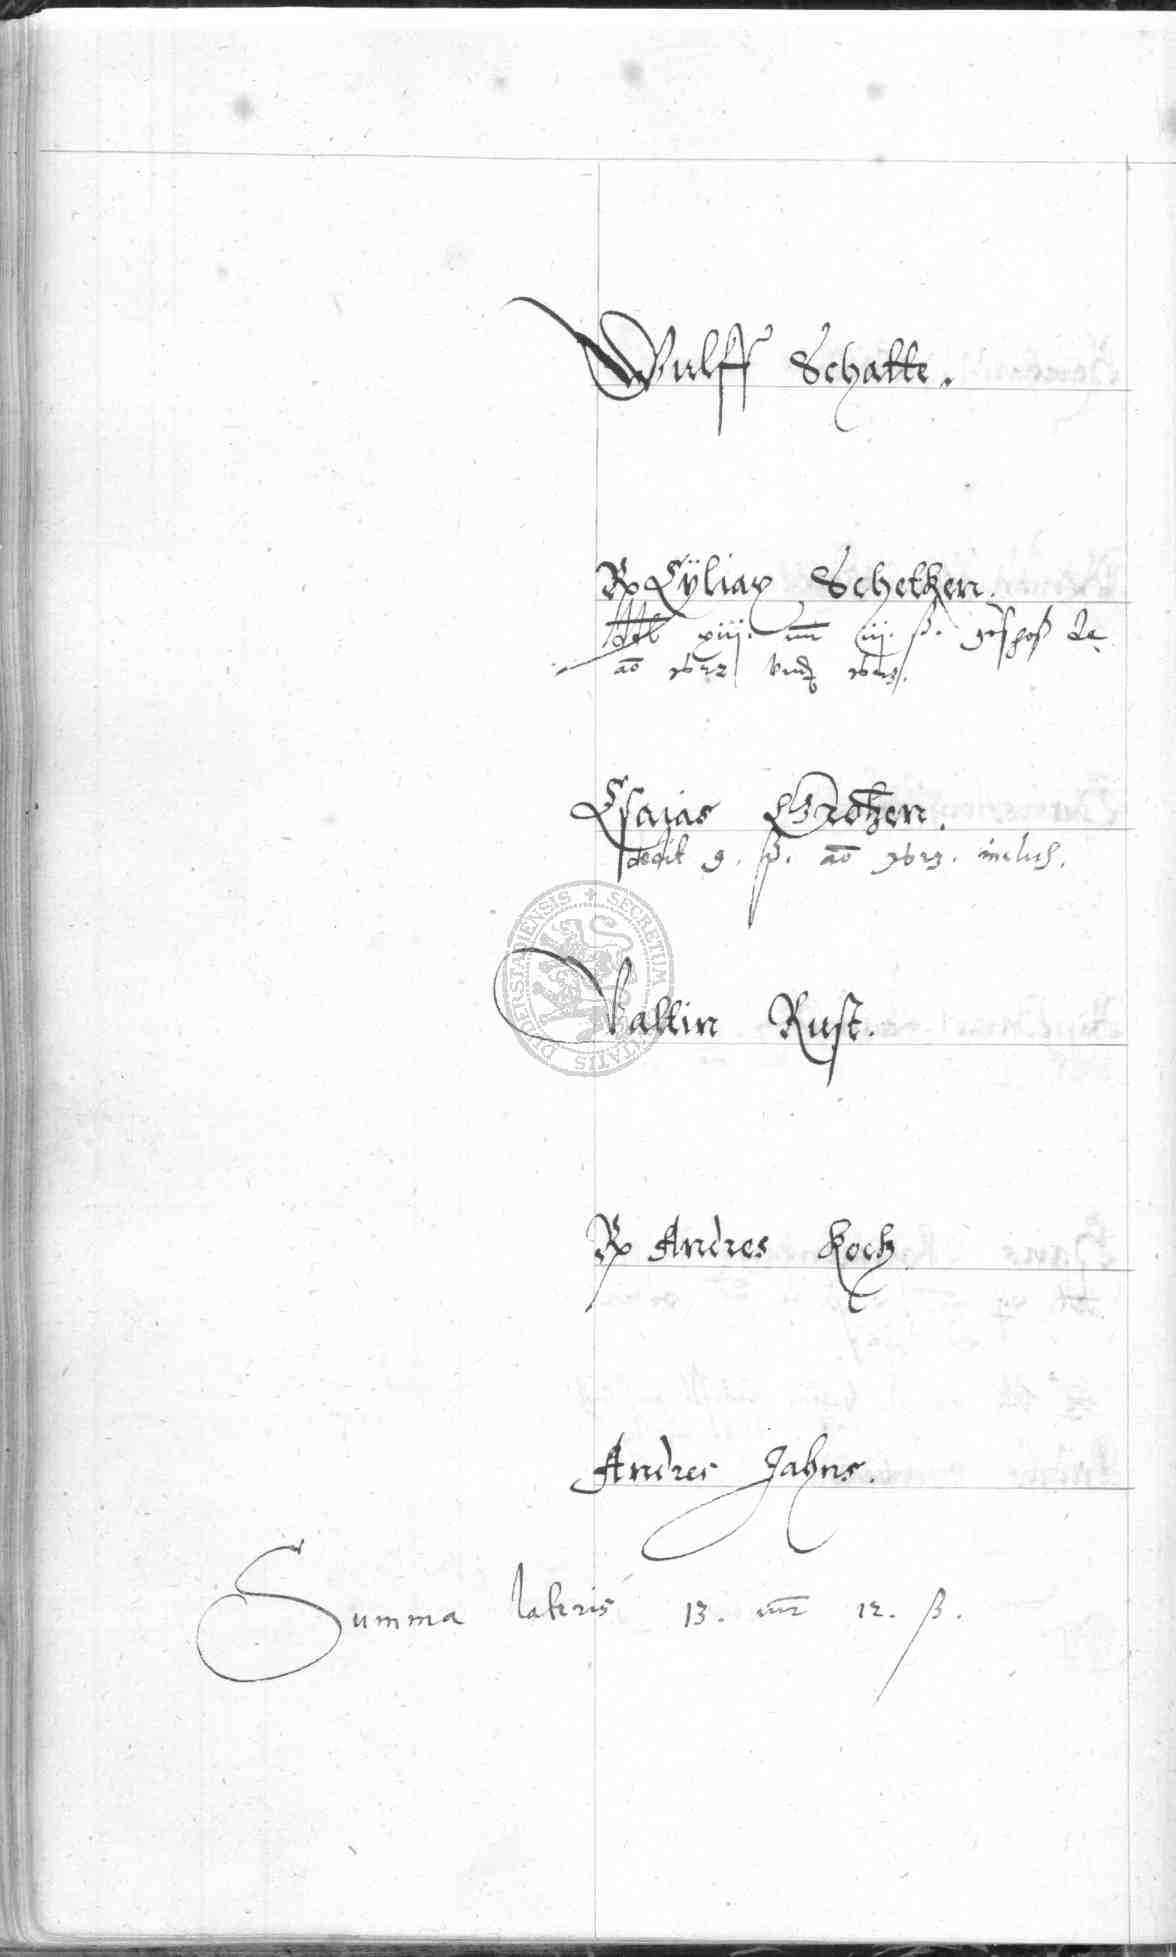 Wulff Schatte.
Cÿliax Schetzen.
dedit xiij. mr iij. ß. geschoß de
ao 1622 vnd 1623.
Esaias Grötzen.
dedit 9. ß. ao 1623. inclus.
SECRETUM CIVITATIS DIVERSTADIENSIS
Valtin Rust.
Andres Koch
Andres Jahns.
Summa lateris 13. mr 12. ß.